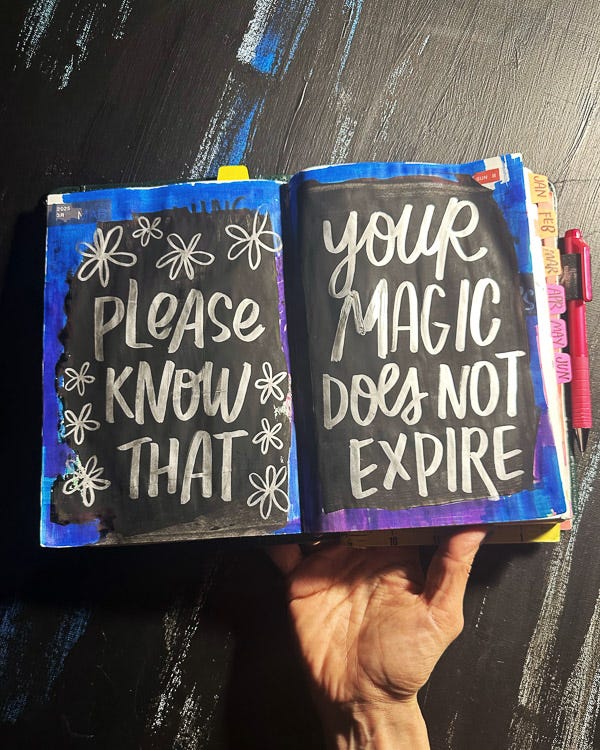 2025
PLeASe
KNOW
THAT
SUN 8
yOUR
MAGIC
DOes NOT
EXPIRE
JAN
FEB
MAR
APR
MAY
JUN
10